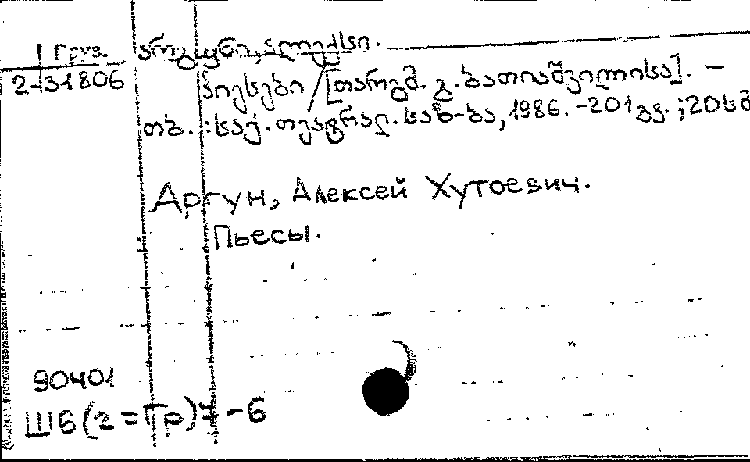 Груз.
არგუნი, ალექსი.
2-31806
პიესები / [თარგმ. გ. ბათიაშვილისა]. –
თბ. : საქ. თეატრალ. საზ-ბა, 1986. - 201 გვ. ; 20სმ
Аргун, Алексей Хутоевич.
Пьесы.
90401
Ш6(2=Гр)7-6